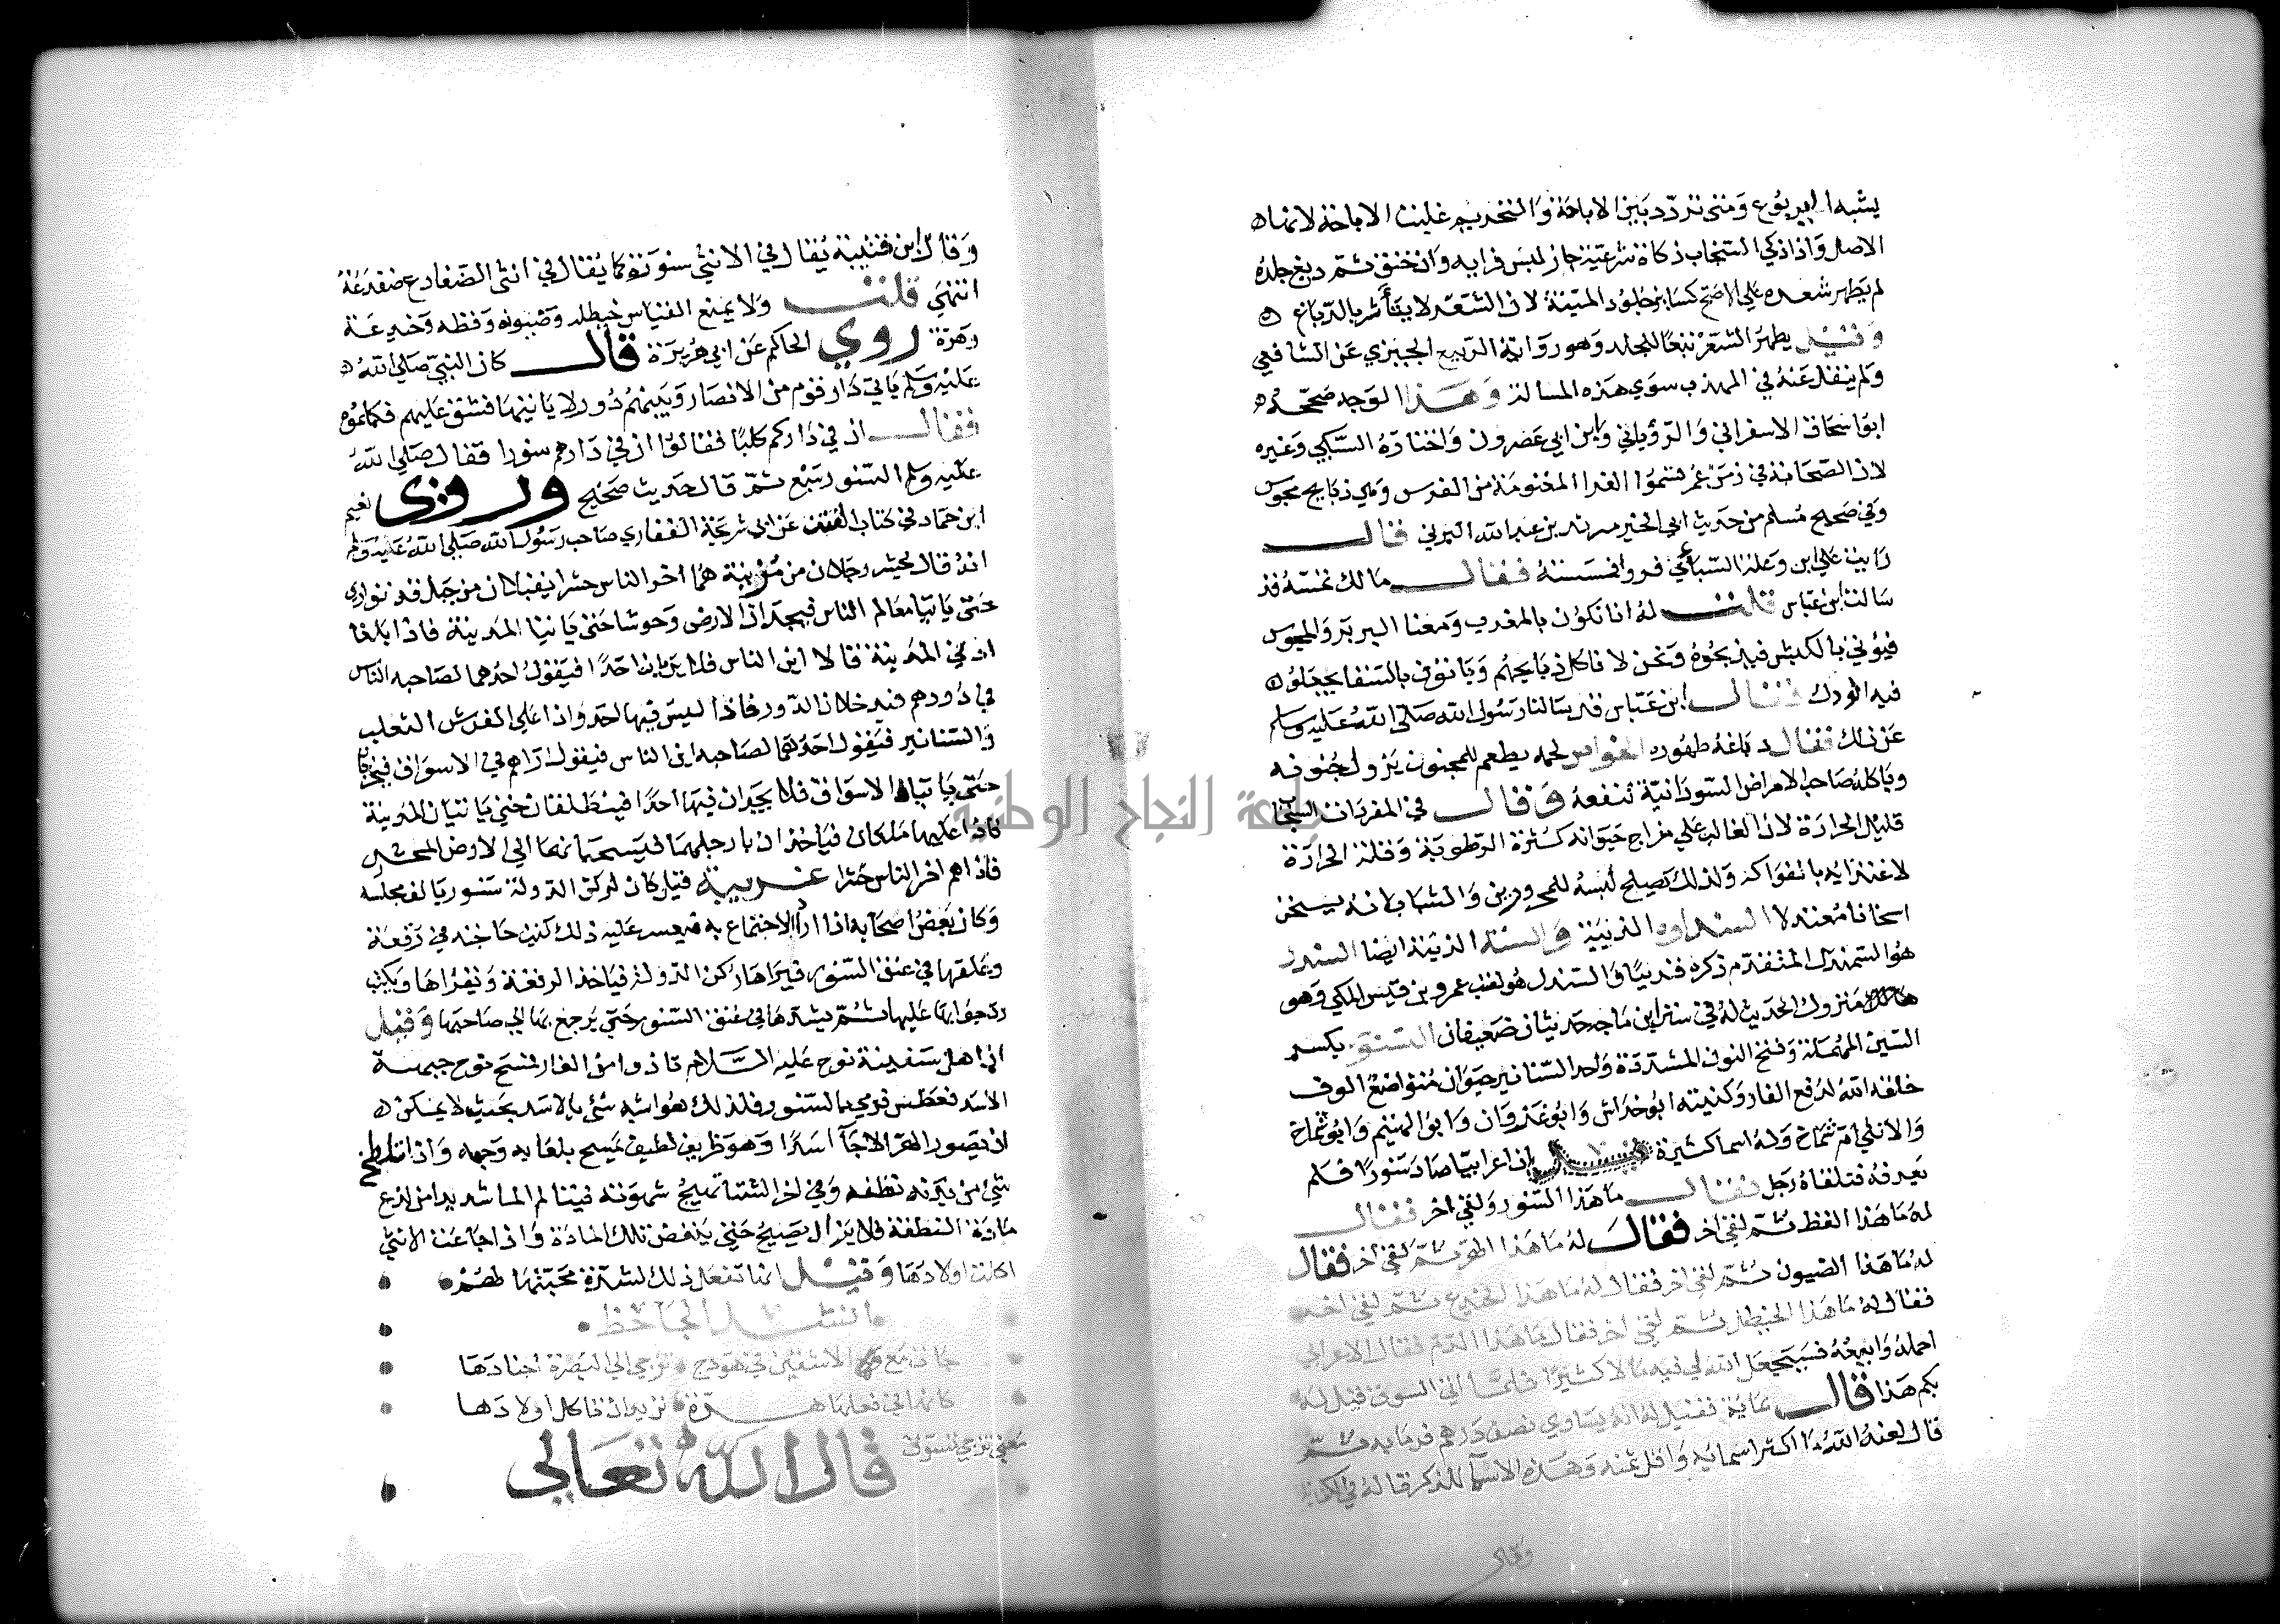 يشبه اليربوع ومتى تردد بين الاباحة والتحريم غلبت الاباحة لانها
الاصل واذا ذكي السنجاب ذكاة شرعية جاز لبس فرايه وان خنق ثم دبغ جلده
لم يطهر شعره على الاصح كسائر جلود الميتة لان الشعر لا يتأثر بالدباغ
وقيل يطهر الشعر تبعا للجلد وهو رواية الربيع الجيزي عن الشافعي
ولم ينقل عنه في المهذب سوى هذه المسالة وهذا الوجه صححه
ابو اسحاق الاسفراني والرؤياني وابن ابي عصرون واختاره السبكي وغيره
لان الصحابة في زمن عمر قسموا الفرا المغنومة من الفرس وهي ذبايح مجوس
وفي صحيح مسلم من حديث ابي الخير مرثد بن عبد الله اليزني قال
رايت على ابن وعلة السباءي فروا فمسسته فقال مالك تمسه قد
سالت ابن عباس قلت له انا نكون بالمغرب ومعنا البربر والمجوس
فيؤتى بالكبش فيذبحوه ونحن لا ناكل ذبايحهم وياتونى بالسقا يجعلون
فيه الودك فقال ابن عباس قد سالنا رسول الله صلى الله عليه وسلم
عن ذلك فقال دباغه طهوره الخواص لحمه يطعم للمجنون يزول جنونه
وياكله صاحب الامراض السودانية تنفعه وقال في المفردات السنجاب
قليل الحرارة لان الغالب على مزاج حيوانه كثرة الرطوبة وقلة الحرارة
لاغتذايه بالفواكه ولذلك يصلح لبسه للمحرورين والشباب لانه يسخن
اسخانا معتدلا السنداوة الذيبة والسندة الذيبة ايضا السندل
هو السمندل المتقدم ذكره قريبا والسندل هو لقب عمرو بن قيس المكي وهو
متروك الحديث له في سنن ابن ماجه حديثان ضعيفان السنور بكسر
السين المهملة وفتح النون المشددة واحد السنانير حيوان متواضع الوف
خلقه الله لدفع الفار وكنيته ابو خداش وابو غزوان وابو الهيثم وابو شماخ
والانثى ام شماخ وله اسما كثيرة قيل ان اعرابيا صاد سنورا فلم
يعرفه فتلقاه رجل فقال ما هذا السنور ولقي اخر فقال
له ما هذا القط ثم لقي اخر فقال له ما هذا الهر ثم لقي اخر فقال
له ما هذا الضيون ثم لقي اخر فقال له ما هذا الخيدع ثم لقي اخر
فقال له ما هذا الخيطل ثم لقي اخر فقال ما هذا الدم فقال الاعرابي
احمله وابيعه فسيجعل الله لي فيه مالا كثيرا فلما اتى السوق قيل له
بكم هذا قال بماية فقيل له انه يساوي نصف درهم فرما به ثم
قال لعنه الله ما اكثر اسمائه واقل ثمنه وهذه الاسما للذكر قاله في الكفاية
وقال
وقال ابن قتيبة يقال في الانثى سنورة كما يقال في انثى الضفادع ضفدعة
انتهى قلت ولا يمنع القياس خيطله وضيونه وقطه وخيدعة
وهرة روي الحاكم عن ابي هريرة قال كان النبي صلى الله
عليه وسلم ياتي دار قوم من الانصار وبينهم دور لا ياتيها فشق عليهم فكلموه
فقال ان في داركم كلبا فقالوا ان في دارهم سنورا فقال صلى الله
عليه وسلم السنور سبع ثم قال حديث صحيح وروى نعيم
ابن حماد في كتاب الفتن عن ابي شريحة الغفاري صاحب رسول الله صلى الله عليه وسلم
انه قال يحشر رجلان من مزينة هما اخر الناس حشرا يقبلان من جبل قد تواري
حتى ياتيا معالم الناس فيجدان الارض وحوشا حتى ياتيا المدينة فاذا بلغا
ادنى المدينة قالا اين الناس فلا يريان احدا فيقول احدهما لصاحبه الناس
في دورهم فيدخلان الدور فاذا ليس فيها احد واذا على الفرش الثعلب
والسنانير فيقول احدهما لصاحبه اين الناس فيقول اراهم في الاسواق فيخرجا
حتى ياتيا الاسواق فلا يجدان فيها احدا فينطلقان حتى ياتيان المدينة
فاذا عليها ملكان فياخذان بارجلهما فيسحبانهما الى الارض المحشر
فاذا هم اخر الناس حشرا غريبة قيل كان لركن الدولة سنور يالف مجلسه
وكان بعض اصحابه اذا اراد الاجتماع به فيعسر عليه ذلك كتب حاجته في رقعة
وعلقها في عنق السنور فيراها ركن الدولة فياخذ الرقعة ويقراها ويكتب
رد جوابها عليها ثم يشدها في عنق السنور حتى يرجع بها الى صاحبها وقيل
ان اهل سفينة نوح عليه السلام تاذوا من الفار فمسح نوح جبهة
الاسد فعطس فرمي بالسنور فلذلك هو اشبه شئ بالاسد بحيث لا يمكن
ان يصور الهر الا جآ اسدا وهو ظريف لطيف يمسح بلعابه وجهه واذا تلطخ
شئ من بدنه نظفه وفي اخر الشتا تهيج شهوته فيتالم الما شديدا من لذع
مادة النطفة فلا يزال يصيح حتى ينفض تلك المادة واذا جاعت الانثى
اكلت اولادها وقيل انما تفعل ذلك لشدة محبتها لهم
انشد الجاحظ
جات مع الاشقين في هودج تزجي الى البصرة اجنادها
كانها في فعلها هرة تريد ان تاكل اولادها
معنى تزجي تسوق قال الله تعالى
جامعة النجاح الوطنية